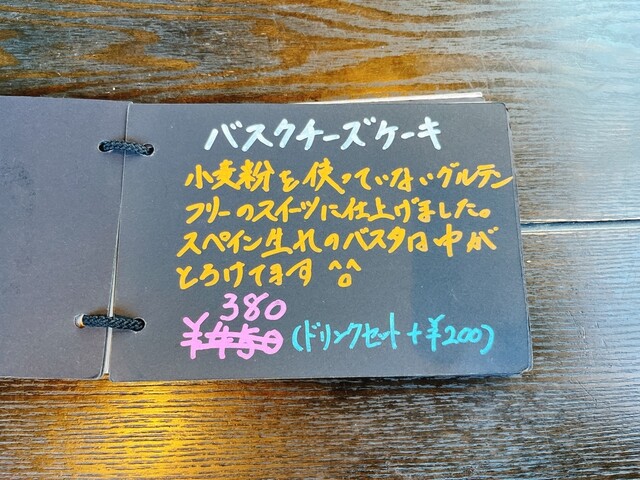 バスクチーズケーキ
小麦粉を使っていないグルテン
フリーのスイーツに仕上げました。
スペイン生れのバスタは中が
とろけてます ^o^
380
¥450 (ドリンクセット+¥200)